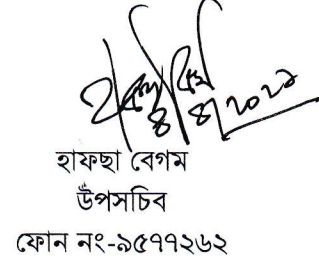 ৪/৪/২০২১
হাফছা বেগম
উপসচিব
ফোন নং-৯৫৭৭২৬২